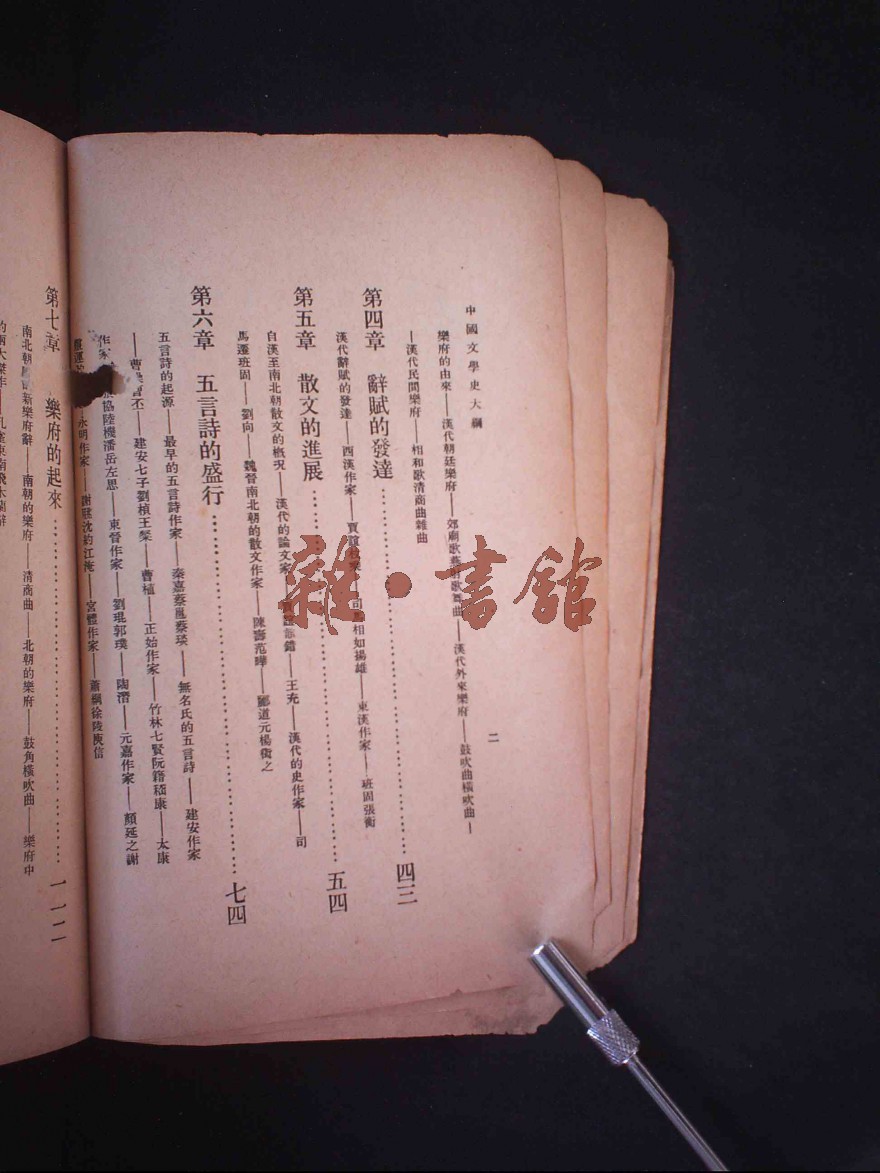 中國文學史大綱
二
樂府的由來——漢代朝廷樂府——郊廟歌燕射歌舞曲——漢代外來樂府——鼓吹曲橫吹曲—
—漢代民間樂府——相和歌清商曲雜曲
第四章 辭賦的發達…………四三
漢代辭賦的發達——西漢作家——賈誼枚乘——司馬相如揚雄——東漢作家——班固張衡
第五章 散文的進展…………五四
自漢至南北朝散文的概況——漢代的論文家——賈誼鼂錯——王充——漢代的史作家——司
馬遷班固——劉向——魏晉南北朝的散文作家——陳壽范曄——酈道元楊衒之
第六章 五言詩的盛行…………七四
五言詩的起源——最早的五言詩作家——秦嘉蔡邕蔡琰——無名氏的五言詩——建安作家
——曹操曹丕——建安七子劉楨王粲——曹植——正始作家——竹林七賢阮籍嵇康——太康
作家 張協陸機潘岳左思——東晉作家——劉琨郭璞——陶潛——元嘉作家——顏延之謝
靈運 永明作家——謝朓沈約江淹——宮體作家——蕭綱徐陵庾信
第七章 樂府的起來…………一一二
南北朝 新樂府辭——南朝的樂府——清商曲——北朝的樂府——鼓角橫吹曲——樂府中
的兩大傑作——孔雀東南飛木蘭辭
雜·書館